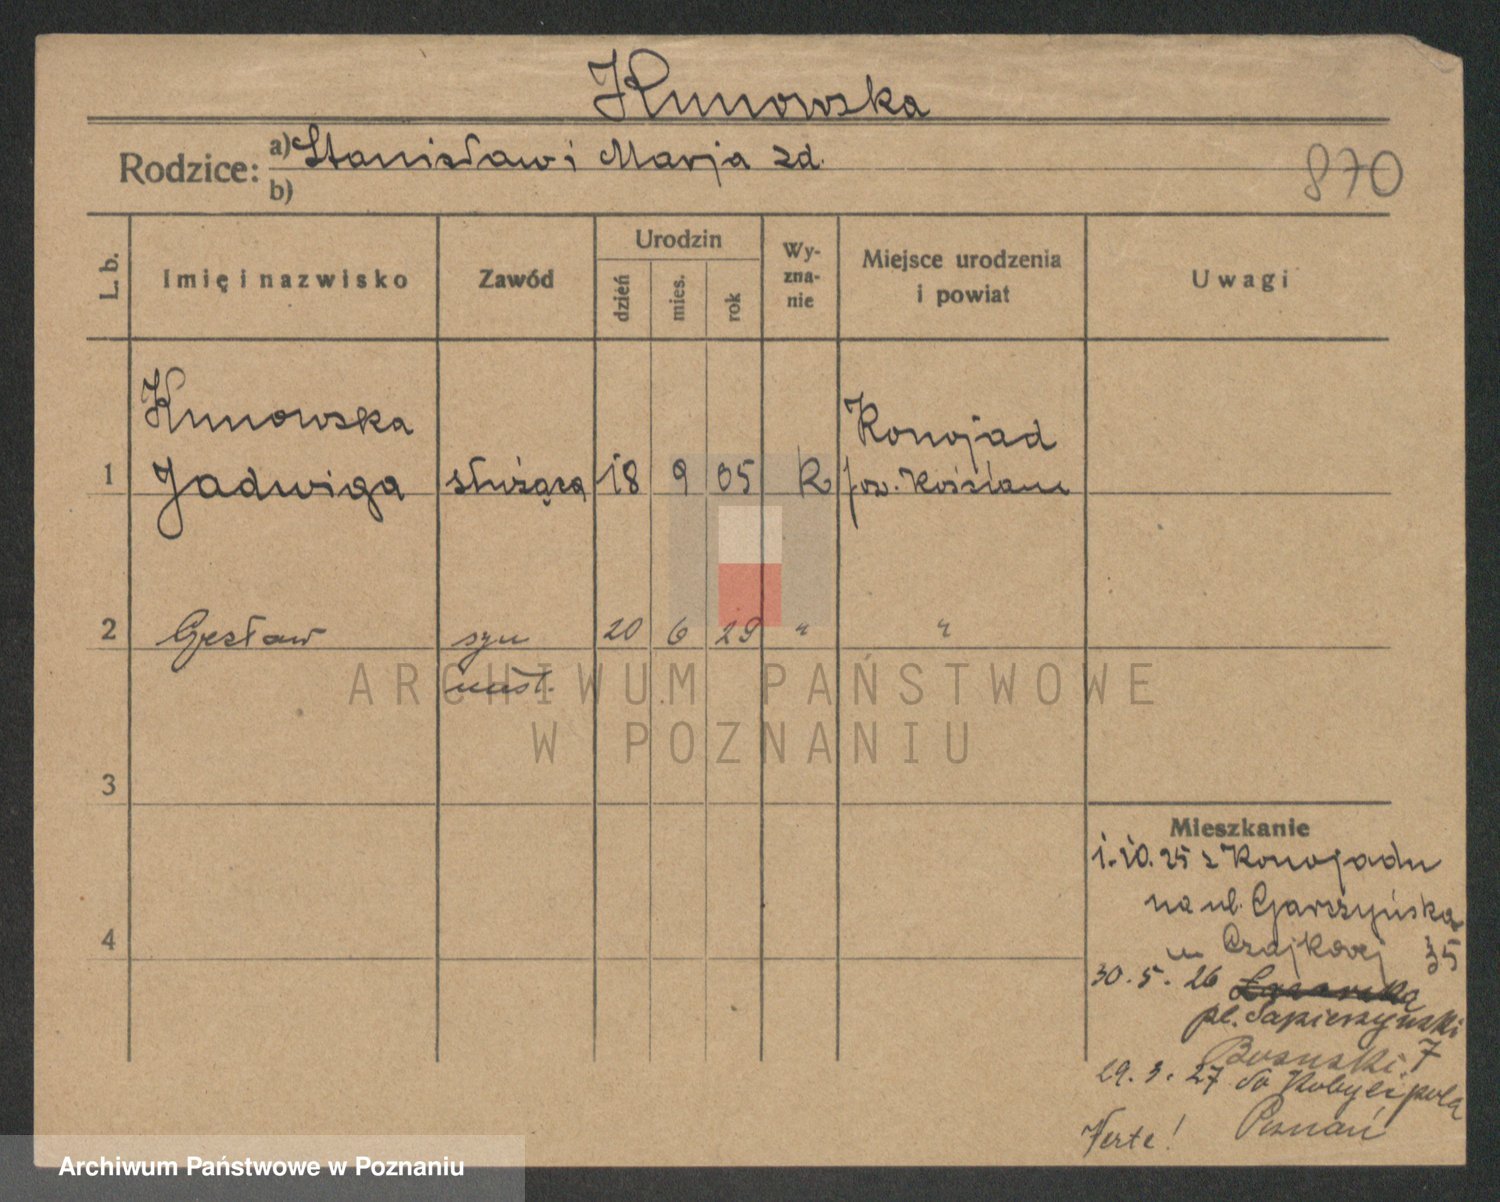 Kunowska
Rodzice: a) Stanisław i Marja zd.
b)
870
L. b.
Imię i nazwisko
Zawód
Urodzin
dzień
mies.
rok
Wy-
zna-
nie
Miejsce urodzenia
i powiat
Uwagi
Kunowska
Konojad
1 Jadwiga służąca 18 9 05 R pow. Kościan
2 Czesław syn 20 6 29 " "
nieśl.
3
4
Mieszkanie
1.10.25 z Konojadu
na ul. Garczyńska
u Czajkowej 35
30.5.26
pl. Sapieżyński
7
29.3.27 do Kobylepola
Poznań
Verte!
ARCHIWUM PAŃSTWOWE
W POZNANIU
Archiwum Państwowe w Poznaniu